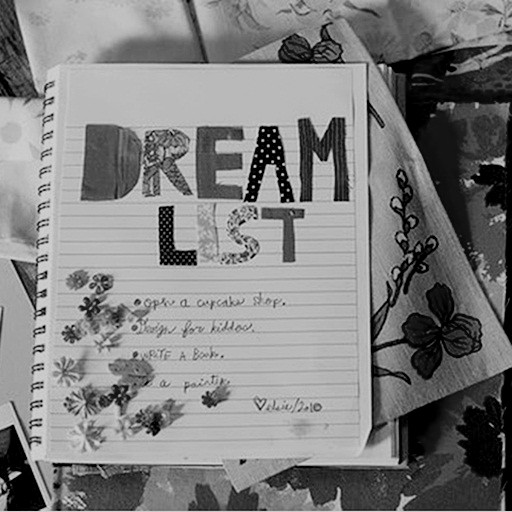 DREAM
LIST
• open a cupcake shop.
• Design for kiddos.
• WRITE A Book.
a painter
♡elsie/2010